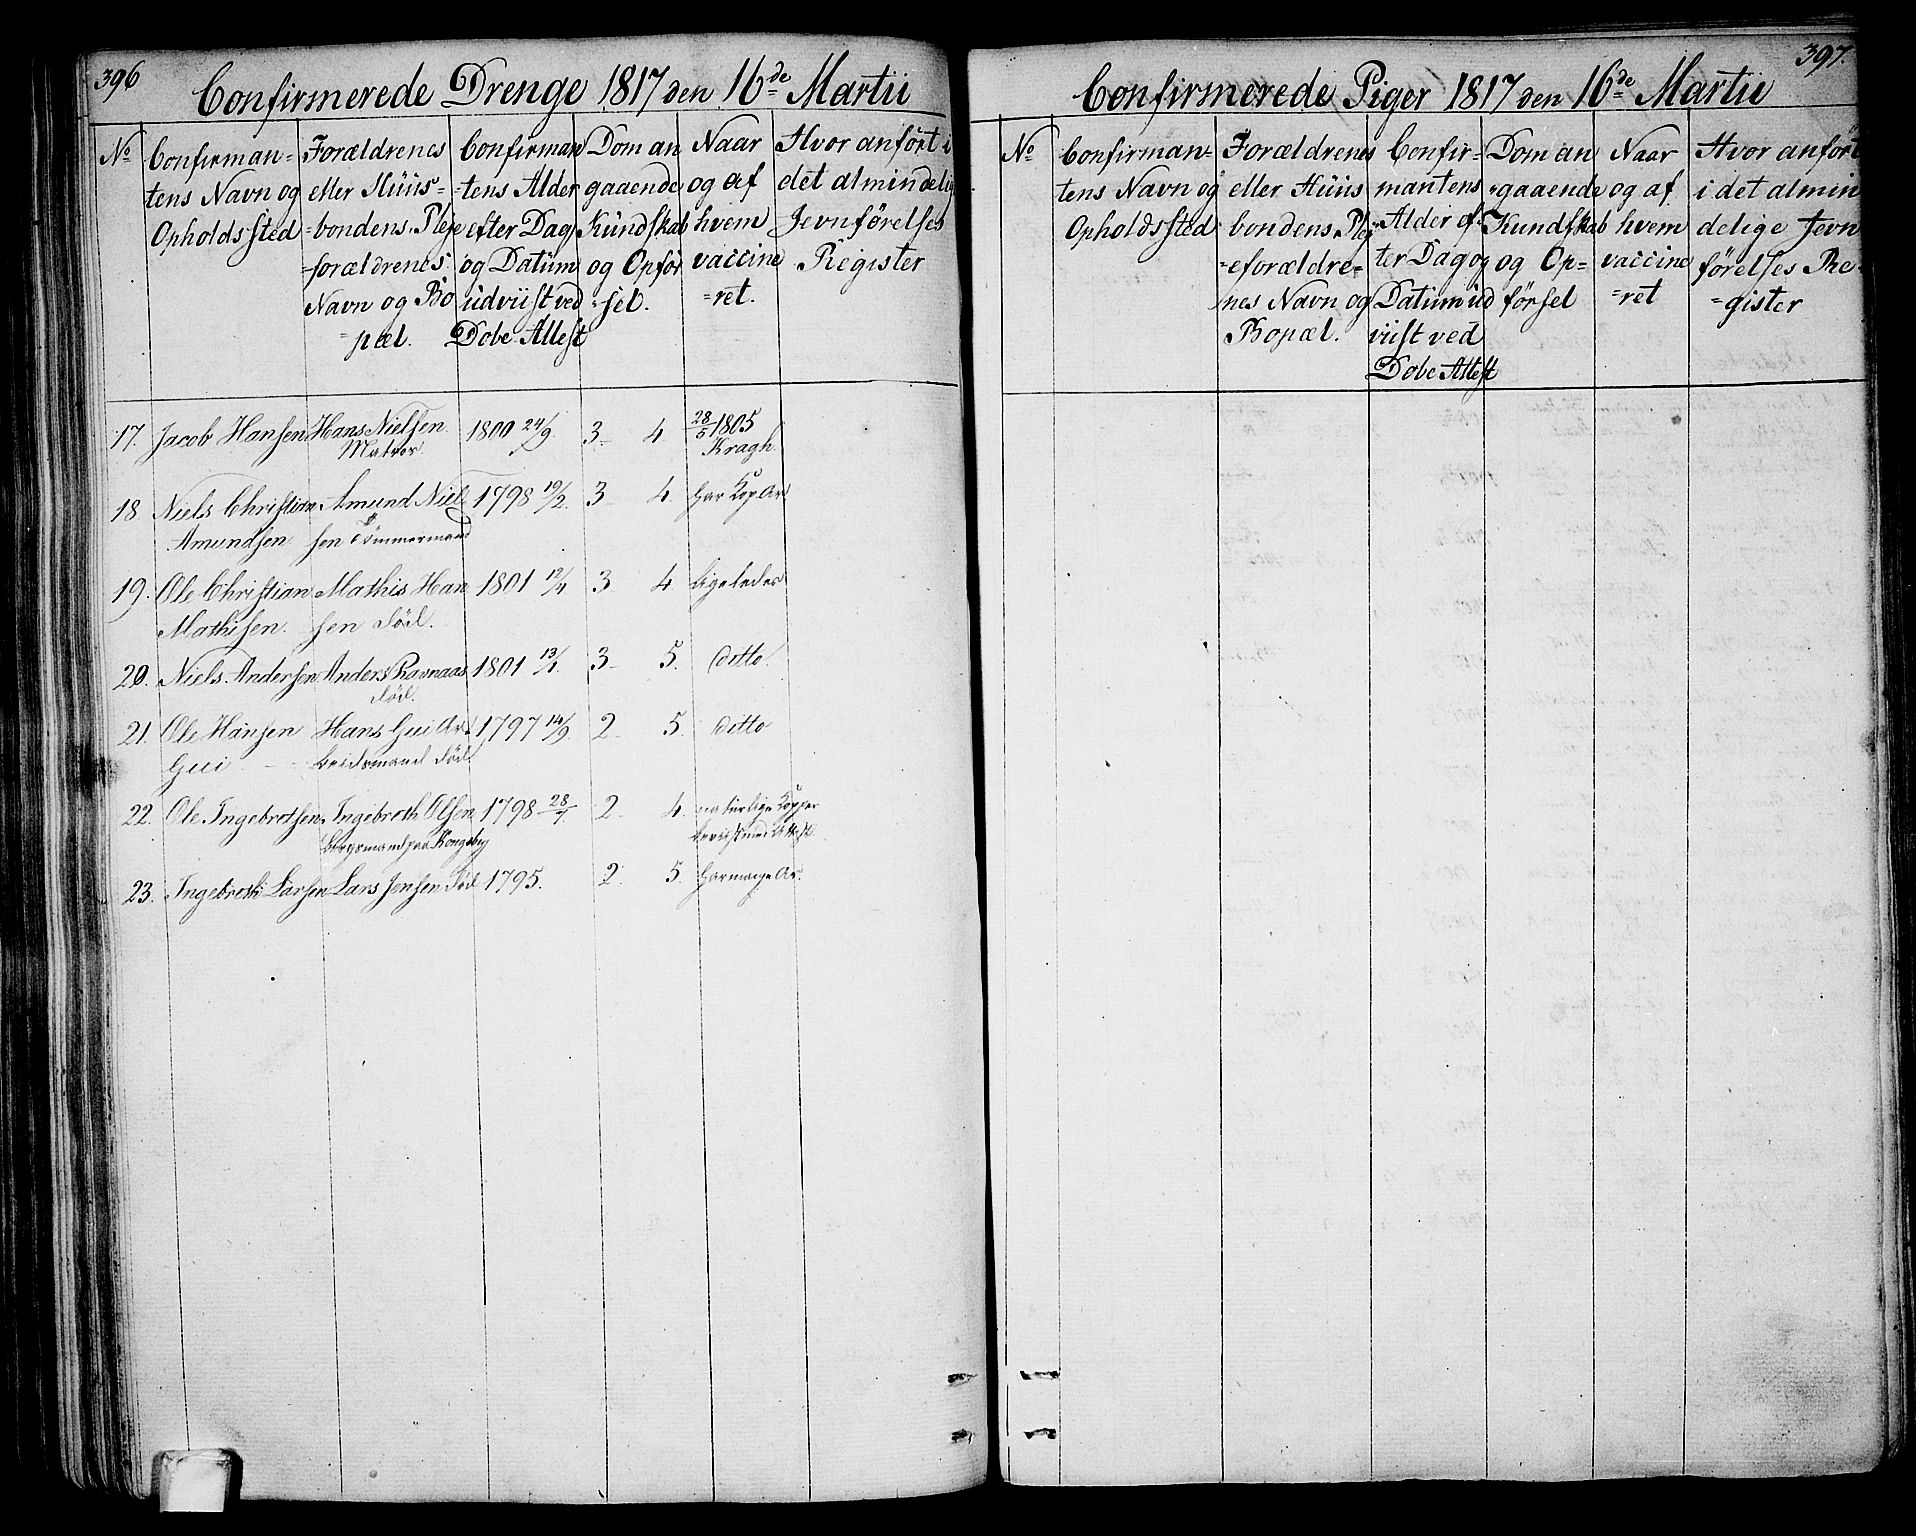 396
Confirmerede Drenge 1817 den 16de Martii
No
Confirman=
tens Navn og
Opholdssted
Forældrenes
eller Huus=
=bondens, Pleje
=forældrenes
Navn og Bo
=pæl.
Confirman
=tens Alder
efter Dag
og Datum
udviist ved
Dobe Attest
Dom an
gaaende
Kundskab
og Opfør
=sel.
Naar
og af
hvem
vaccine
=ret.
Hvor anført i
det almindelig
Jevnførelses
Register
17. Jacob Hansen Hans Nielsen 1800 24/9. 3 4 28/5 1805
Kragh.
18 Niels Christian Amund Niel= 1798 19/2. 3 4. har Kop Ar
Amundsen sen Tømmermand
19. Ole Christian Mathis Han 1801 12/4 3 4. ligeledes
Mathisen. sen død.
20. Niels Andersen Anders Ravnaas 1801 13/1. 3 5. ditto.
død.
21. Ole Hansen Hans Gui Ar= 1797 14/9. 2 5. ditto
Gui beidsmand død.
22. Ole Ingebretsen Ingebreth Olsen 1798 28/7. 2 4. naturlige Kopper
Bergsmand paa Kongsberg beviist med Attest
23. Ingebreth Larsen Lars Jensen død 1795. 2. 5. har mange Ar.
397.
Confirmerede Piger 1817 den 16de Martii
No
Confirman=
tens Navn og
Opholdssted
Forældrenes
eller Huus
bondens Plej
=eforældre=
nes Navn og
Bopæl.
Confir=
mantens
Alder ef
ter Dag og
Datum ud
viist ved
Dobe Attest
Dom an
=gaaende
Kundskab
og Op=
førsel
Naar
og af
hvem
vaccine
=ret
Hvor anført
i det almin
delige Jevn
førelses Re=
=gister